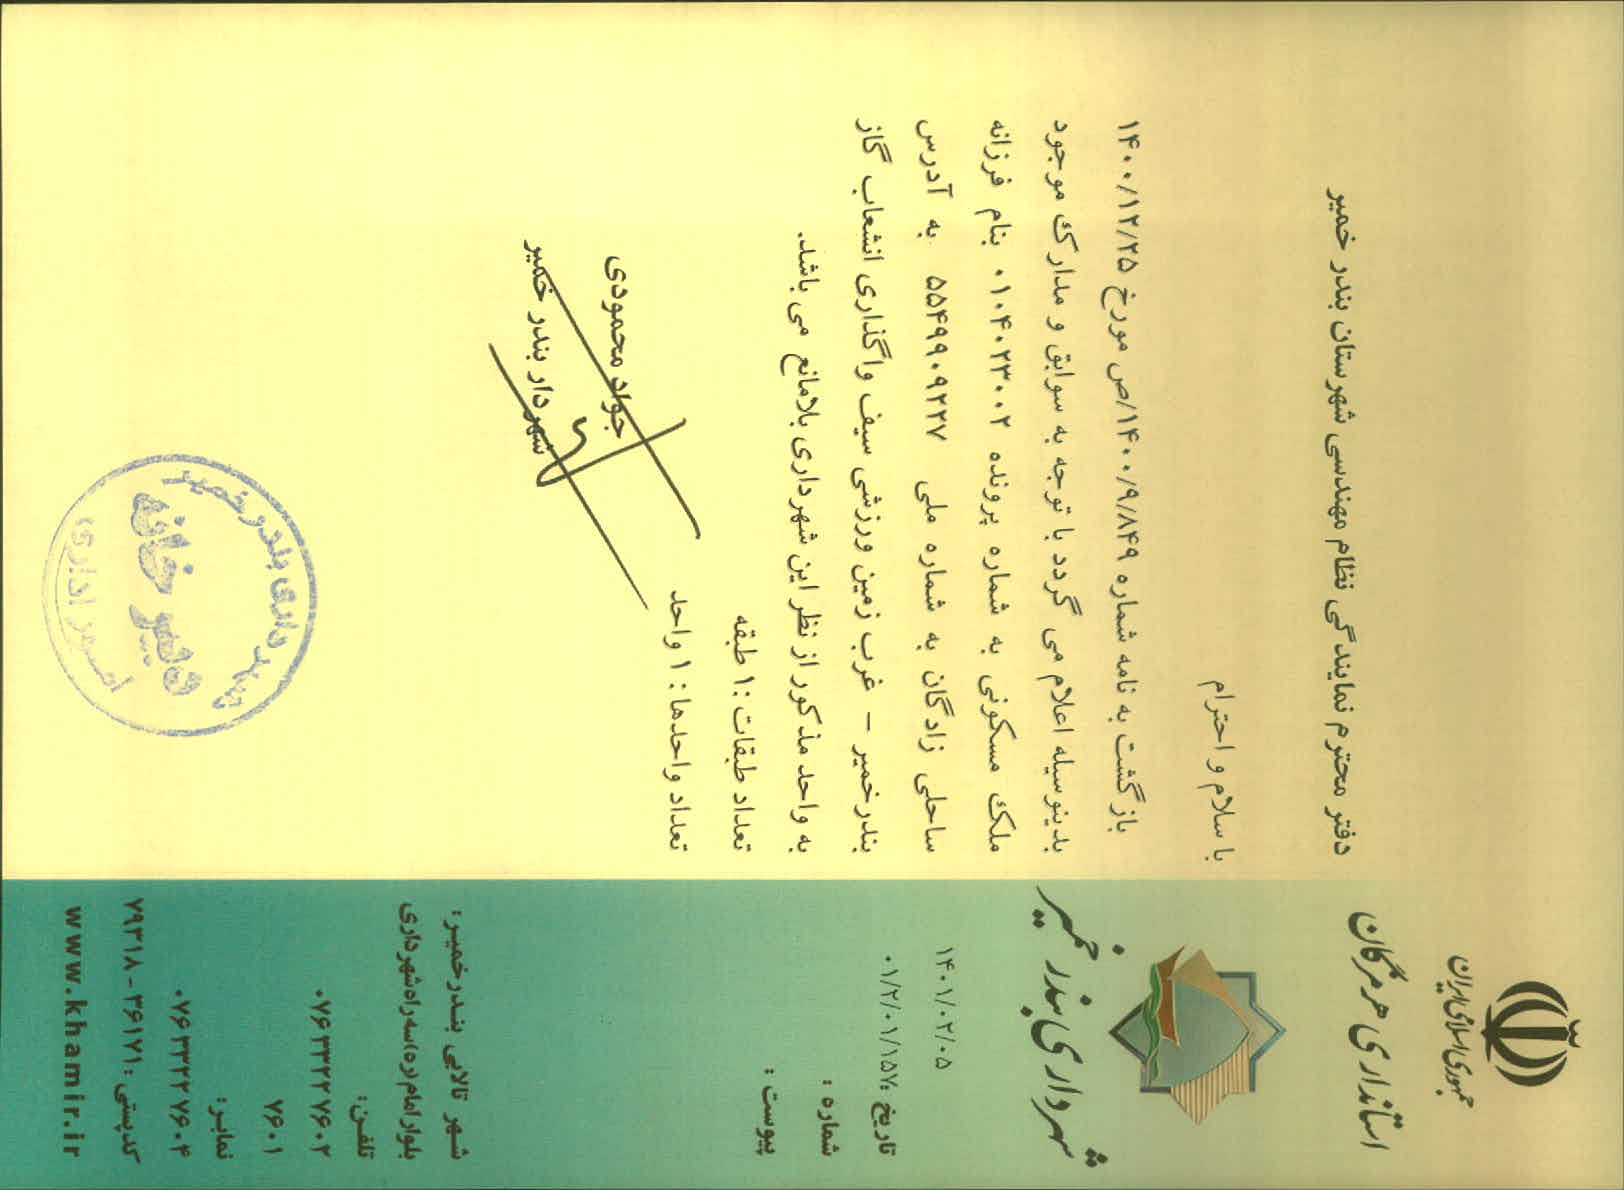 جمهوری اسلامی ایران
استانداری هرمزگان
شهرداری بندر خمیر
۱۴۰۱/۰۲/۰۵
تاریخ :۰۱/۲/۰۱/۱۵۷
شماره :
پیوست :
دفتر محترم نمایندگی نظام مهندسی شهرستان بندر خمیر
با سلام و احترام
بازگشت به نامه شماره ۱۴۰۰/۹/۸۴۹/ص مورخ ۱۴۰۰/۱۲/۲۵
بدینوسیله اعلام می گردد با توجه به سوابق و مدارک موجود
ملک مسکونی به شماره پرونده ۰۱۰۴۰۲۳۰۰۲ بنام فرزانه
ساحلی زادگان به شماره ملی ۵۵۴۹۹۰۹۲۲۷ به آدرس
بندرخمیر – غرب زمین ورزشی سیف واگذاری انشعاب گاز
به واحد مذکور از نظر این شهرداری بلامانع می باشد.
تعداد طبقات :۱ طبقه
تعداد واحدها : ۱ واحد
جواد محمودی
شهردار بندر خمیر
شهرداری بندر خمیر
دبیرخانه
امور اداری
شهر تالابی بندرخمیر:
بلوار امام (ره)سه راه شهرداری
تلفن:
۰۷۶ ۳۳۲۲ ۷۶۰۲
۷۶۰۱
نمابر:
۰۷۶ ۳۳۲۲ ۷۶۰۴
کدپستی :۳۶۱۷۱ - ۷۹۳۱۸
www.khamir.ir